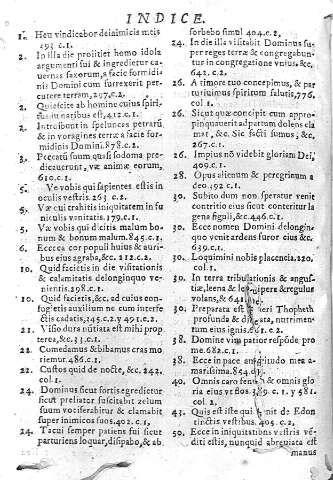 INDICE.
1. Heu vindicabor deiaimicis meis
193 c.1.
2. In illa die proiitiet homo idola
argumenti sui & ingredietur ca
uernas saxorum, a facie formidi
nis Domini cum surrexerit percu
tere terram, 297. c.2.
2. Quiescite ab homine cuius spiri
tus in naribus est, 412. c.1.
2. Introibunt in speluncas petrarũ
& in voragines terræ a facie for
midinis Domini. 878. c.2.
3. Peccatũ suum quasi sodoma præ
dicauerunt, væ animæ eorum,
610. c.1.
5. Ve vobis qui sapientes estis in
oculis vestris. 263 c.2.
5. Væ cui trahitis iniquitatem in fu
niculis vanitatis. 179. c.1.
5. Væ vobis qui dicitis malum bo
num & bonum malum. 845. c.1.
6. Excæca cor populi huius & auri
bus eius agraba, &c. 212. c.2.
10. Quid facietis in die visitationis
& calamitatis delonginquo ve
nientis. 298. c.1.
10. Quid facietis, &c. ad cuius con-
fugietis auxilium ne cum interfe
ctis cadatis, 145. c.2 y 491. c.2.
21. Visio dura nũtiata est mihi prop
terea, &c. 331. c.1.
22. Comedamus & bibamus cras mo
riemur. 486. c.1.
22. Custos quid de nocte, &c. 242.
col. 1.
24. Dominus sicut fortis egredietur
sicut preliator suscitabit zelum
suum vociferabitur & clamabit
super inimicos suos. 402. c.1,
24. Tacui semper patiens fui sicut
parturiens loquar, dispabo, & ab
sorbebo simul 404. c.2.
24. In die illa visitabit Dominus su
per reges terræ & congregabun-
tur in congregatione vnius, &c.
642. c.2.
26. A timore tuo concepimus, & par
turiuimus spiritum salutis, 776.
col. 1.
26. Sicut quæ concipit cum appro-
pinquauerit ad partum dolens cla
mat, &c. Sic facti sumus, &c.
267. c.1.
26. Impius nõ videbit gloriam Dei,
409. c.1.
28. Opus alienum & peregrinum a
deo. 192 c.1.
30. Subito dum non speratur venit
contritio eius sicut conteritur la
gena figali, &c. 446. c.1.
30. Ecce nomen Domini delongin-
quo venit ardens furor eius &c.
639. c.1.
30. Loquimini nobis placencia. 220.
col. 1.
30. In terra tribulationis & angus-
tiæ, leena & leo vipere & regulus
volans, & 641
30. Preparata est heri Thopheth
profunda & dilatata, nutrimen-
tum eius ignis. 661. c.2.
38. Domine vim patior respõde pro
me. 682. c.1.
38. Ecce in pace amaritudo mea a-
marissima. 854. c.1.
40. Omnis caro fenum & omnis glo
ria eius vt flos. 389. c.1. y 581.
col. 2.
43. Quis est iste qui venit de Edon
tinctis vestibus. 405. c.2.
50. Ecce in iniquitatibus vestris ve-
diti estis, nunquid abreuiata est
manus